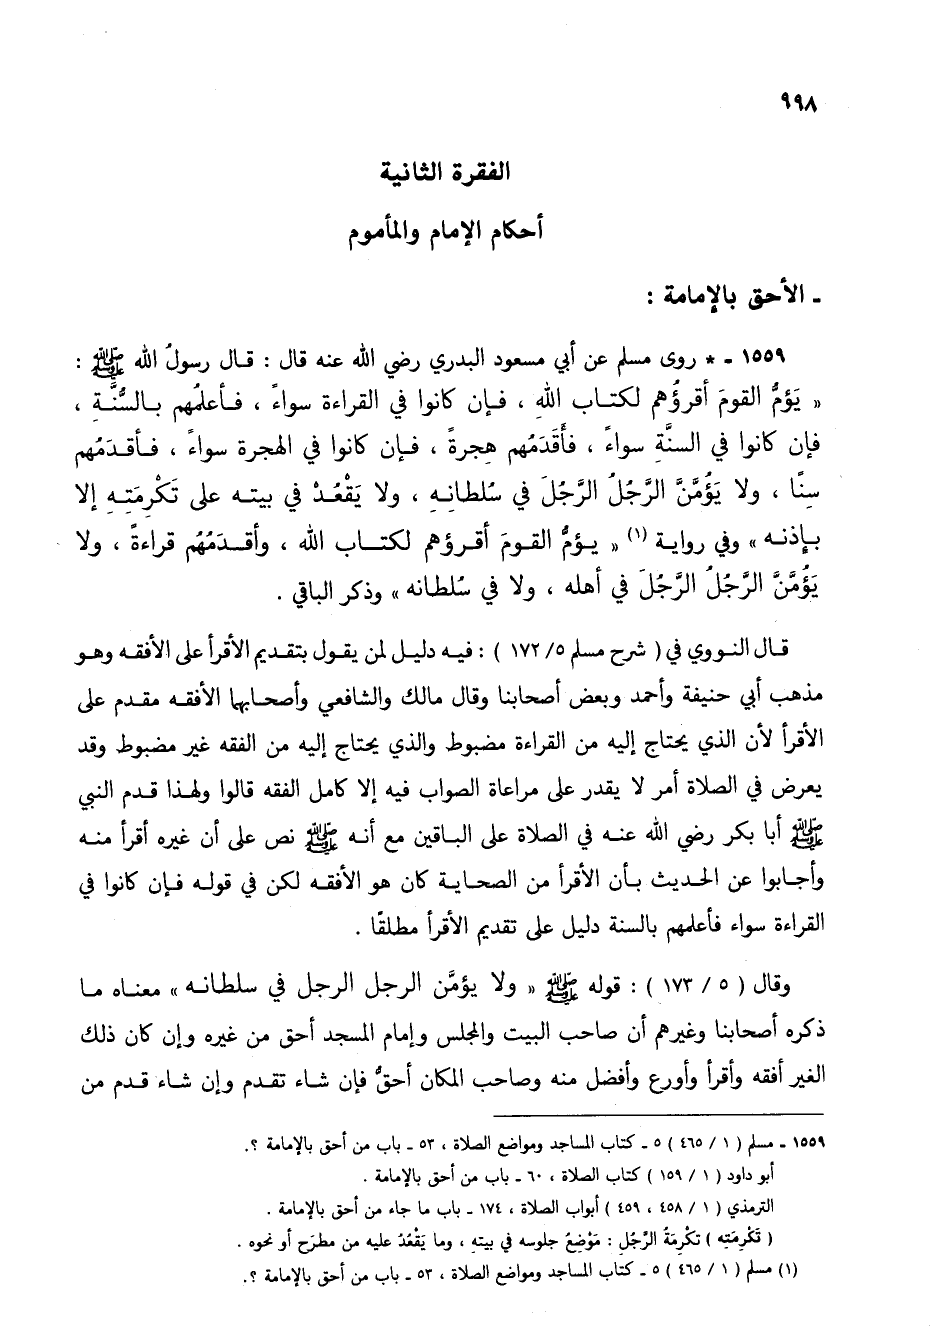 ٩٩٨
الفقرة الثانية
أحكام الإمام والمأموم
ـ الأحق بالإمامة :
١٥٥٩ ـ * روى مسلم عن أبي مسعود البدري رضي الله عنه قال : قال رسولُ الله ﷺ :
« يَؤمُّ القومَ أقرؤُهم لكتاب اللهِ ، فإن كانوا في القراءة سواءً ، فأعلمُهم بالسُّنَّة ،
فإن كانوا في السنَّةِ سواءً ، فأَقدَمُهم هِجرةً ، فإن كانوا في الهجرة سواءً ، فأقدَمُهم
سِنًّا ، ولا يَؤُمَّنَّ الرَّجُلُ الرَّجُلَ في سُلطانِهِ ، ولا يَقْعُدْ في بيتـه على تَكْرِمَتِـهِ إلا
بإذنه » وفي رواية (١) « يؤمُّ القومَ أقرؤهم لكتاب الله ، وأقدَمُهُم قراءةً ، ولا
يَؤُمَّنَّ الرَّجُلُ الرَّجُلَ في أهله ، ولا في سُلطانه » وذكر الباقي .
قال النووي في ( شرح مسلم ٥/ ١٧٢ ) : فيه دليل لمن يقول بتقديم الأقرأ على الأفقه وهو
مذهب أبي حنيفة وأحمد وبعض أصحابنا وقال مالك والشافعي وأصحابها الأفقه مقدم على
الأقرأ لأن الذي يحتاج إليه من القراءة مضبوط والذي يحتاج إليه من الفقه غير مضبوط وقد
يعرض في الصلاة أمر لا يقدر على مراعاة الصواب فيه إلا كامل الفقه قالوا ولهذا قدم النبي
ﷺ أبا بكر رضي الله عنه في الصلاة على الباقين مع أنه ﷺ نص على أن غيره أقرأ منه
وأجابوا عن الحديث بأن الأقرأ من الصحابة كان هو الأفقه لكن في قوله فإن كانوا في
القراءة سواء فأعلمهم بالسنة دليل على تقديم الأقرأ مطلقًا .
وقال ( ٥ / ١٧٣ ) : قوله ﷺ « ولا يؤمَّن الرجل الرجل في سلطانه » معناه ما
ذكره أصحابنا وغيرهم أن صاحب البيت والمجلس وإمام المسجد أحق من غيره وإن كان ذلك
الغير أفقه وأقرأ وأورع وأفضل منه وصاحب المكان أحقُّ فإن شاء تقدم وإن شاء قدم من
١٥٥٩ ـ مسلم ( ١ / ٤٦٥ ) ٥ ـ كتاب المساجد ومواضع الصلاة ، ٥٣ ـ باب من أحق بالإمامة ؟.
أبو داود ( ١ / ١٥٩ ) كتاب الصلاة ، ٦٠ ـ باب من أحق بالإمامة .
الترمذي ( ١ / ٤٥٨ ، ٤٥٩ ) أبواب الصلاة ، ١٧٤ ـ باب ما جاء من أحق بالإمامة .
( تَكْرِمَتِه ) تكْرِمَةُ الرَّجُلِ : مَوْضِعُ جلوسه في بيته ، وما يَقْعُدُ عليه من مطرَح أو نحوه .
(١) مسلم ( ١ / ٤٦٥ ) ٥ ـ كتاب المساجد ومواضع الصلاة ، ٥٣ ـ باب من أحق بالإمامة ؟.